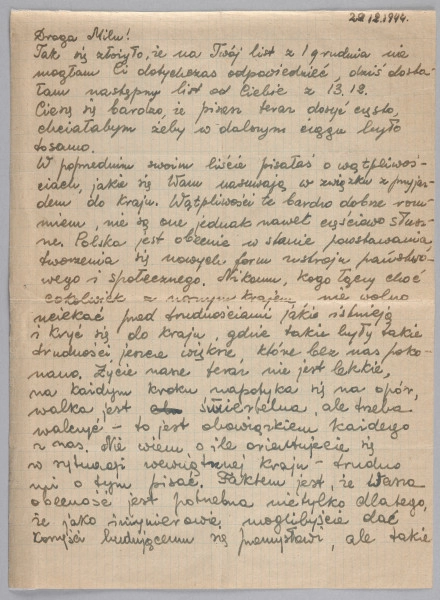 28.12.1944.
Droga Milu!
Tak się złożyło, że na Twój list z 1 grudnia nie
mogłam Ci dotychczas odpowiedzieć, dziś dosta-
łam następny list od Ciebie z 13.12.
Cieszę się bardzo, że piszesz teraz dosyć często,
chciałabym żeby w dalszym ciągu było
tosamo.
W poprzednim swoim liście pisałaś o wątpliwoś-
ciach, jakie się Wam nasuwają w związku z przyjaz-
dem do kraju. Wątpliwości te bardzo dobrze rozu-
miem, nie są one jednak nawet częściowo słusz-
ne. Polska jest obecnie w stanie powstawania,
tworzenia się nowych form ustroju państwo-
wego i społecznego. Nikomu, kogo łączy choć
cokolwiek z naszym krajem, nie wolno
uciekać przed trudnościami jakie istnieją
i kryć się do kraju, gdzie takie były takie
trudności, jeszcze większe, które bez nas poko-
nano. Życie nasze teraz nie jest lekkie,
na każdym kroku napotyka się na opór,
walka jest śmiertelna, ale trzeba
walczyć – to jest obowiązkiem każdego
z nas. Nie wiem o ile orientujecie się
w sytuacji wewnętrznej kraju – trudno
mi o tym pisać. Faktem jest, że Wasza
obecność jest potrzebna nietylko dlatego,
że jako inżynierowie moglibyście dać
korzyści budującemu się przemysłowi, ale takie